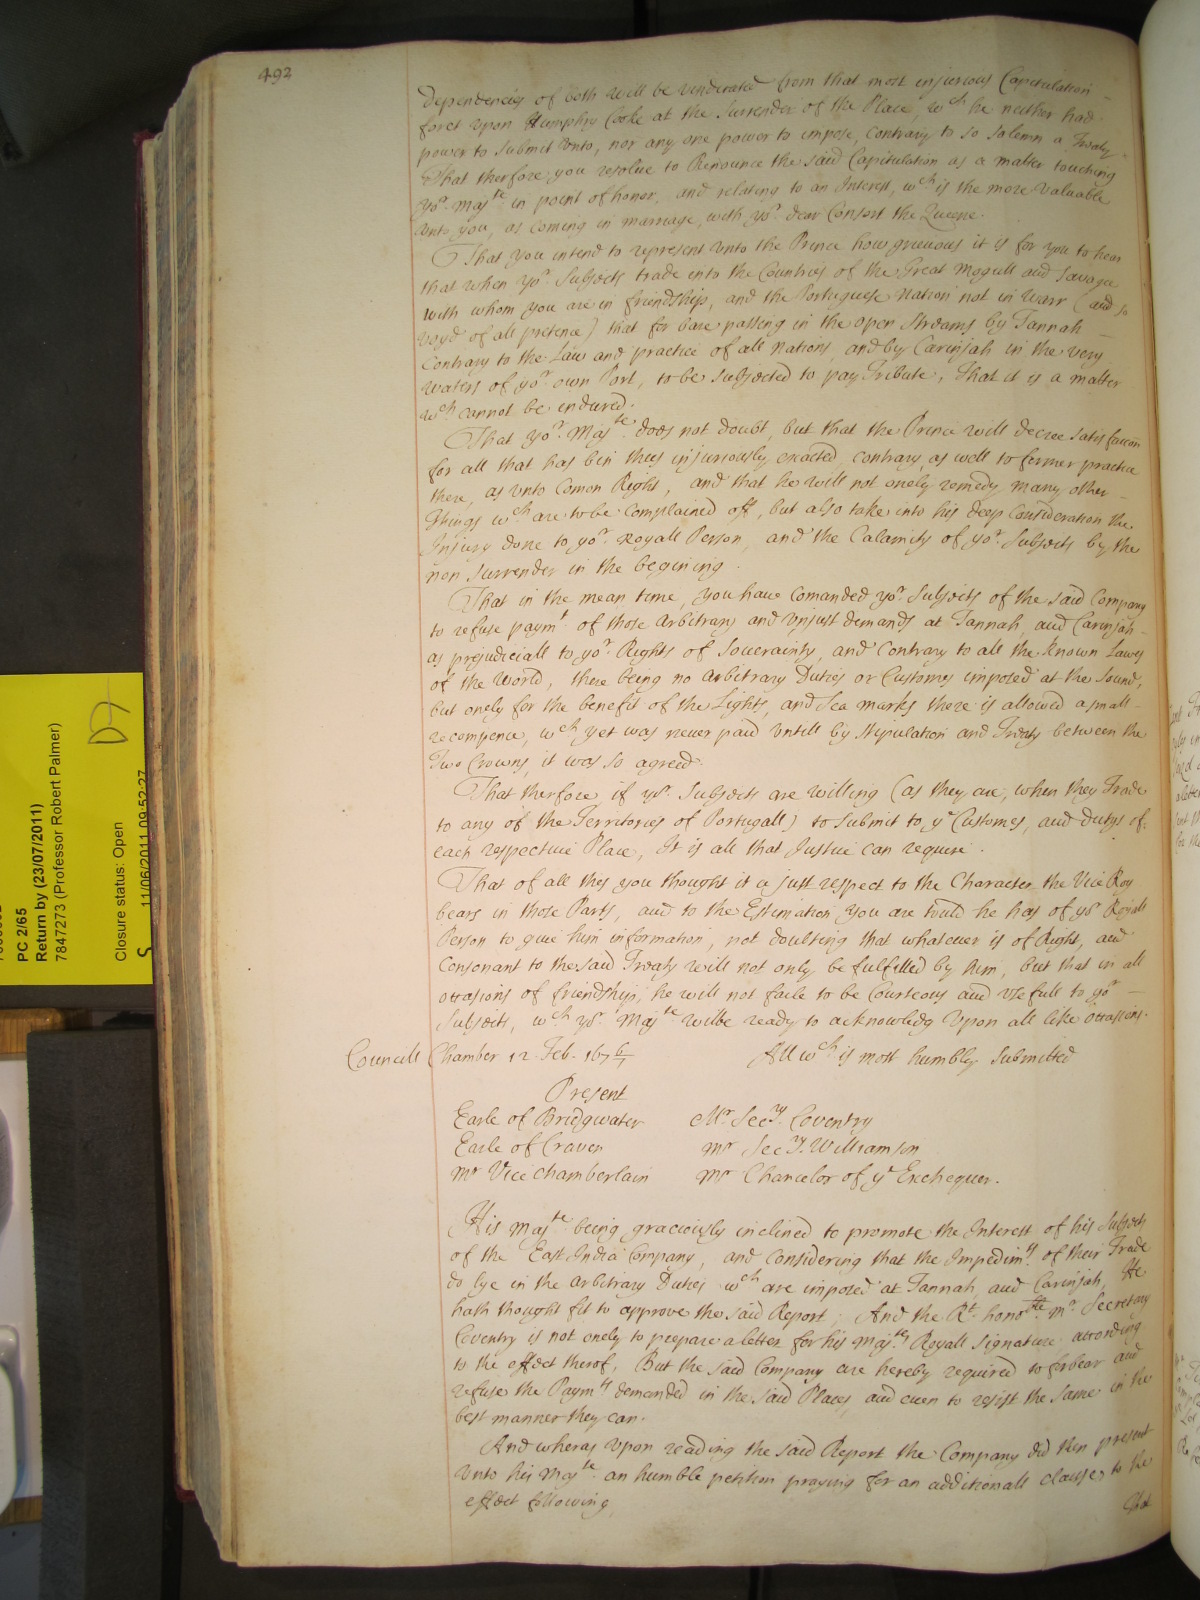 492
Dependencies of both will be vindicated from that most injurious Capitulation
forct upon Humphry Cooke at the Surrender of the Place, wch he neither had
power to submit vnto, nor any one power to impose, contrary to so Solemn a Treaty
That therfore you resolve to Renounce the said Capitulation as a matter touching
yor. Majte in point of honor, and relating to an Interest, wch is the more Valuable
vnto you, as coming in marriage, with yor. dear Consort the Queene.
That you intend to represent vnto the Prince how grieuous it is for you to hear
that when yor. Subjects trade into the Countries of the Great Mogull and Savagee
with whom you are in friendship, and the Portuguese Nation not in Warr (and so
voyd of all pretence) that for bare passing in the open Streams by Tannah
Contrary to the Law and practice of all Nations, and by Carinjah in the very
waters of yor own Port, to be subjected to pay Tribute, That it is a matter
wch cannot be endured.
That yor. Majte does not doubt, but that the Prince will decree satisfaccon
for all that has bin thus injuriously exacted contrary, as well to former practice
there, as vnto Comon Right, and that he will not onely remedy many other
Things wch are to be complained off, but also take into his deep Consideration the
Injury done to yor. Royall Person, and the Calamity of yor. Subjects by the
non Surrender in the begining.
That in the mean time, you have comanded yor. Subjects of the said Company
to refuse paymt. of those Arbitrary and Vnjust demands at Tannah, and Carinjah
as prejudiciall to yor. Rights of Soueraintÿ, and Contrary to all the known Lawes
of the World, there being no Arbitrary Duties or Customes imposed at the Sound,
but onely for the benefit of the Lights, and Sea marks there is allowed a small
recompence, wch yet was never paid Vntill by Stipulation and Treaty between the
Two Crowns, it was so agreed.
That therfore if yor. Subjects are willing (as they are, when they Trade
to any of the Territories of Portugall) to submit to ye Customes, and dutys of
each respective Place, It is all that Justice can require.
That of all this you thought it a just respect to the Character the Vice Roy
bears in those Parts, and to the Estimation you are tould he has of yor Royall
Person to give him information, not doubting that whatever is of Right, and
Consonant to the said Treaty will not only be fulfilled by him, but that in all
occasions of friendship, he will not faile to be Courteous and usefull to yor
Subjects, wch yor. Majte wilbe ready to acknowledg Vpon all like occasions.
All wch is most humbly Submitted
Councill Chamber 12 Feb. 167 6/7
Present
Earle of Bridgwater Mr Secry. Coventry
Earle of Craven Mr Secry. Williamson
Mr Vice chamberlain Mr Chancelor of ye Exchequer.
His Majte being graciously inclined to promote the Interest of his Subjects
of the East India Company, and considering that the Impedimts of their Trade
do lye in the Arbitrary Duties wch are imposed at Tannah, and Carinjah, He
hath thought fit to approve the said Report; And the Rt. honoble Mr. Secretary
Coventry is not onely to prepare a letter for his Majtes Royall Signature according
to the effect therof, But the said Company are hereby required to forbear and
refuse the Paymts demanded in the said Places, and even to resist the same in the
best manner they can.
And wheras Vpon reading the said Report the Company did then present
Vnto his Majte an humble petition praying for an additionall clause, to the
effect following,
That
PC 2/65
Return by (23/07/2011)
7847273 (Professor Robert Palmer)
Closure status: Open
S 11/06/2011 09:52:27